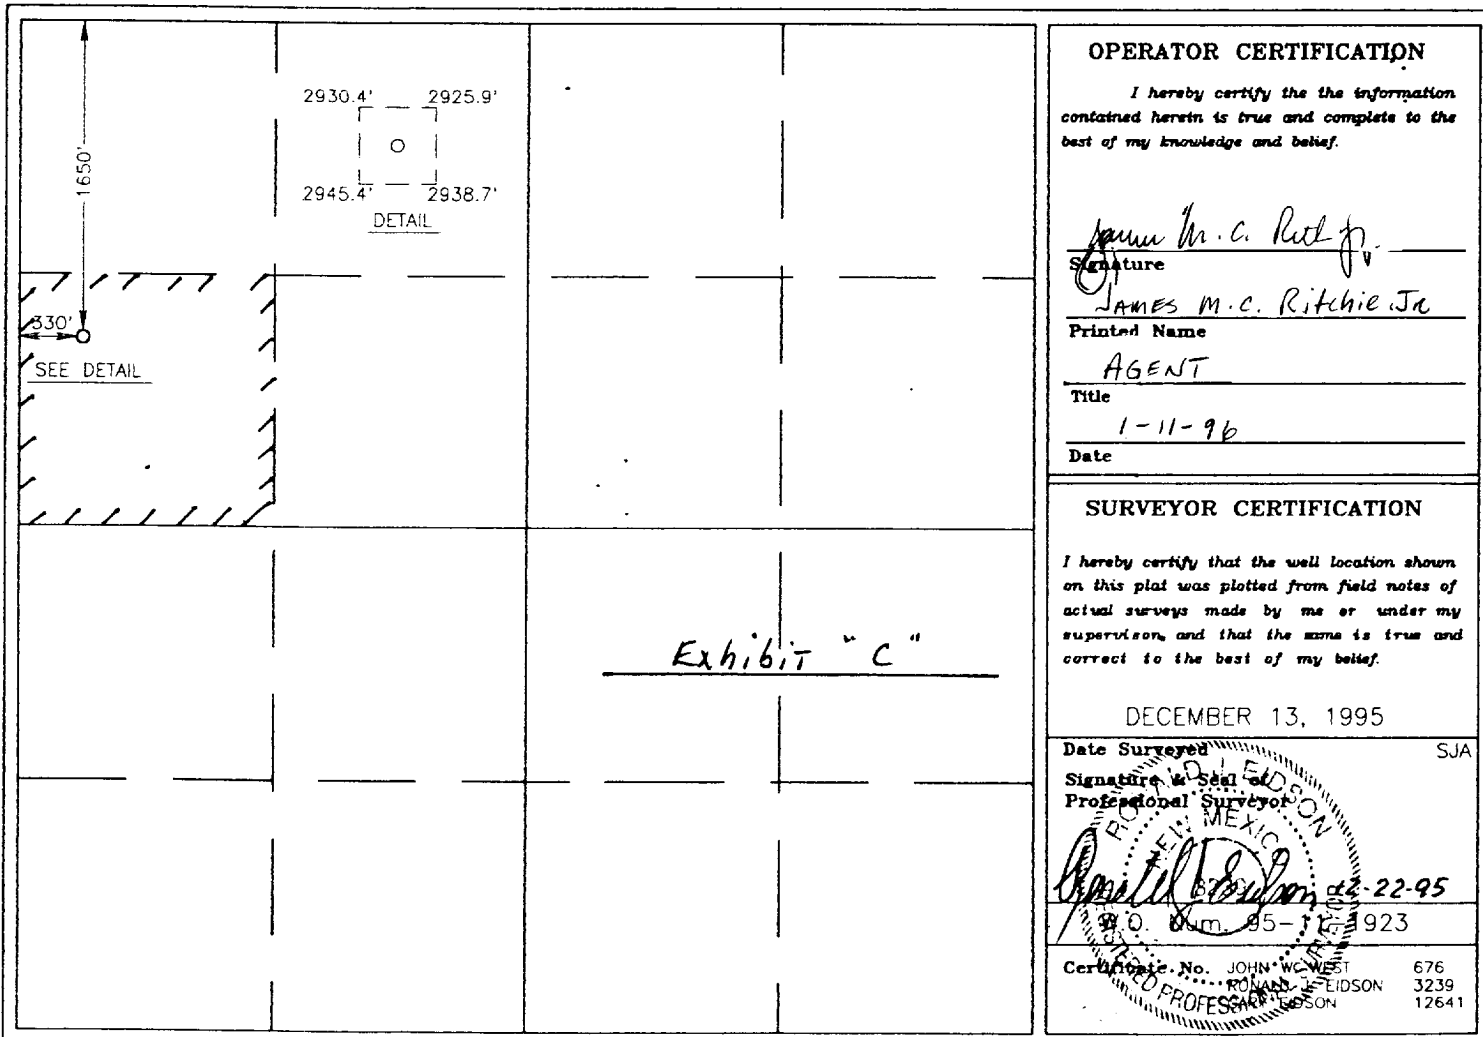 1650'
2930.4' 2925.9'
2945.4' 2938.7'
DETAIL
330'
SEE DETAIL
Exhibit "C"
OPERATOR CERTIFICATION
I hereby certify the the information
contained herein is true and complete to the
best of my knowledge and belief.
Signature
JAMES M.C. Ritchie Jr
Printed Name
AGENT
Title
1-11-96
Date
SURVEYOR CERTIFICATION
I hereby certify that the well location shown
on this plat was plotted from field notes of
actual surveys made by me or under my
supervison, and that the same is true and
correct to the best of my belief.
DECEMBER 13, 1995
Date Surveyed SJA
Signature & Seal of
Professional Surveyor
RONALD J EIDSON
NEW MEXICO
REGISTERED PROFESSIONAL SURVEYOR
12-22-95
W.O. Num. 95-11-1923
Certificate No. JOHN W WEST 676
RONALD J EIDSON 3239
GARY EIDSON 12641